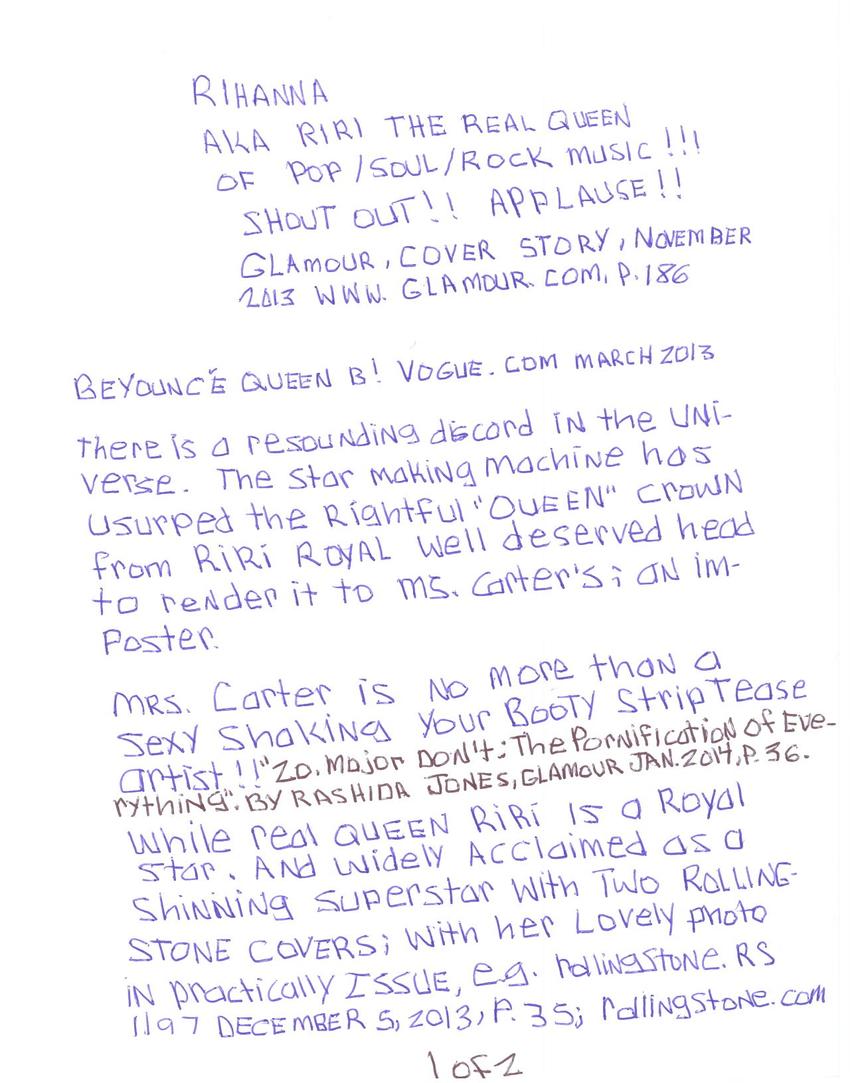 RIHANNA
AKA RIRI THE REAL QUEEN
OF POP/SOUL/ROCK MUSIC!!!
SHOUT OUT!! APPLAUSE!!
GLAMOUR, COVER STORY, NOVEMBER
2013 WWW. GLAMOUR. COM, P.186
BEYOUNCÉ QUEEN B! VOGUE. COM MARCH 2013
There is a resounding discord in the UNI-
verse. The Star making machine has
usurped the Rightful "QUEEN" Crown
from RiRi ROYAL well deserved head
to render it to Ms. Carter's; an im-
Poster.
MRS. Carter is NO more than a
Sexy Shaking Your Booty Strip Tease
artist!! "20. Major DON't: The Pornification of Eve-
rything". BY RASHIDA JONES, GLAMOUR JAN. 2014, P. 36.
While real QUEEN RiRi IS a Royal
Star. AND Widely Acclaimed as a
Shinning Superstar with Two ROLLING-
STONE COVERS; With her Lovely photo
in practically ISSUE, e.g. rollingStone. RS
1197 DECEMBER 5, 2013, P. 35; rollingStone.com
1 of 2